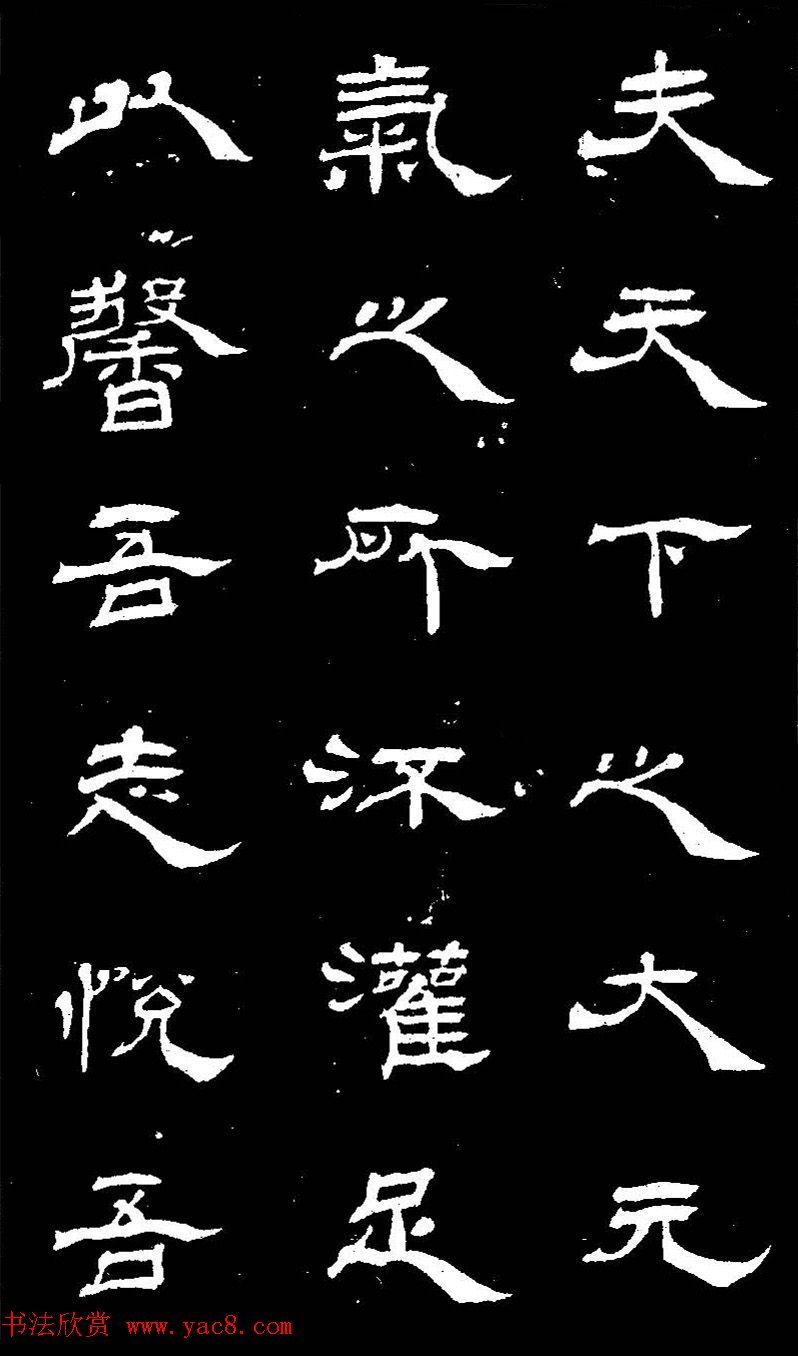 夫天下之大元
氣之所沠灌足
以馨吾志悅吾
书法欣赏 www.yac8.com